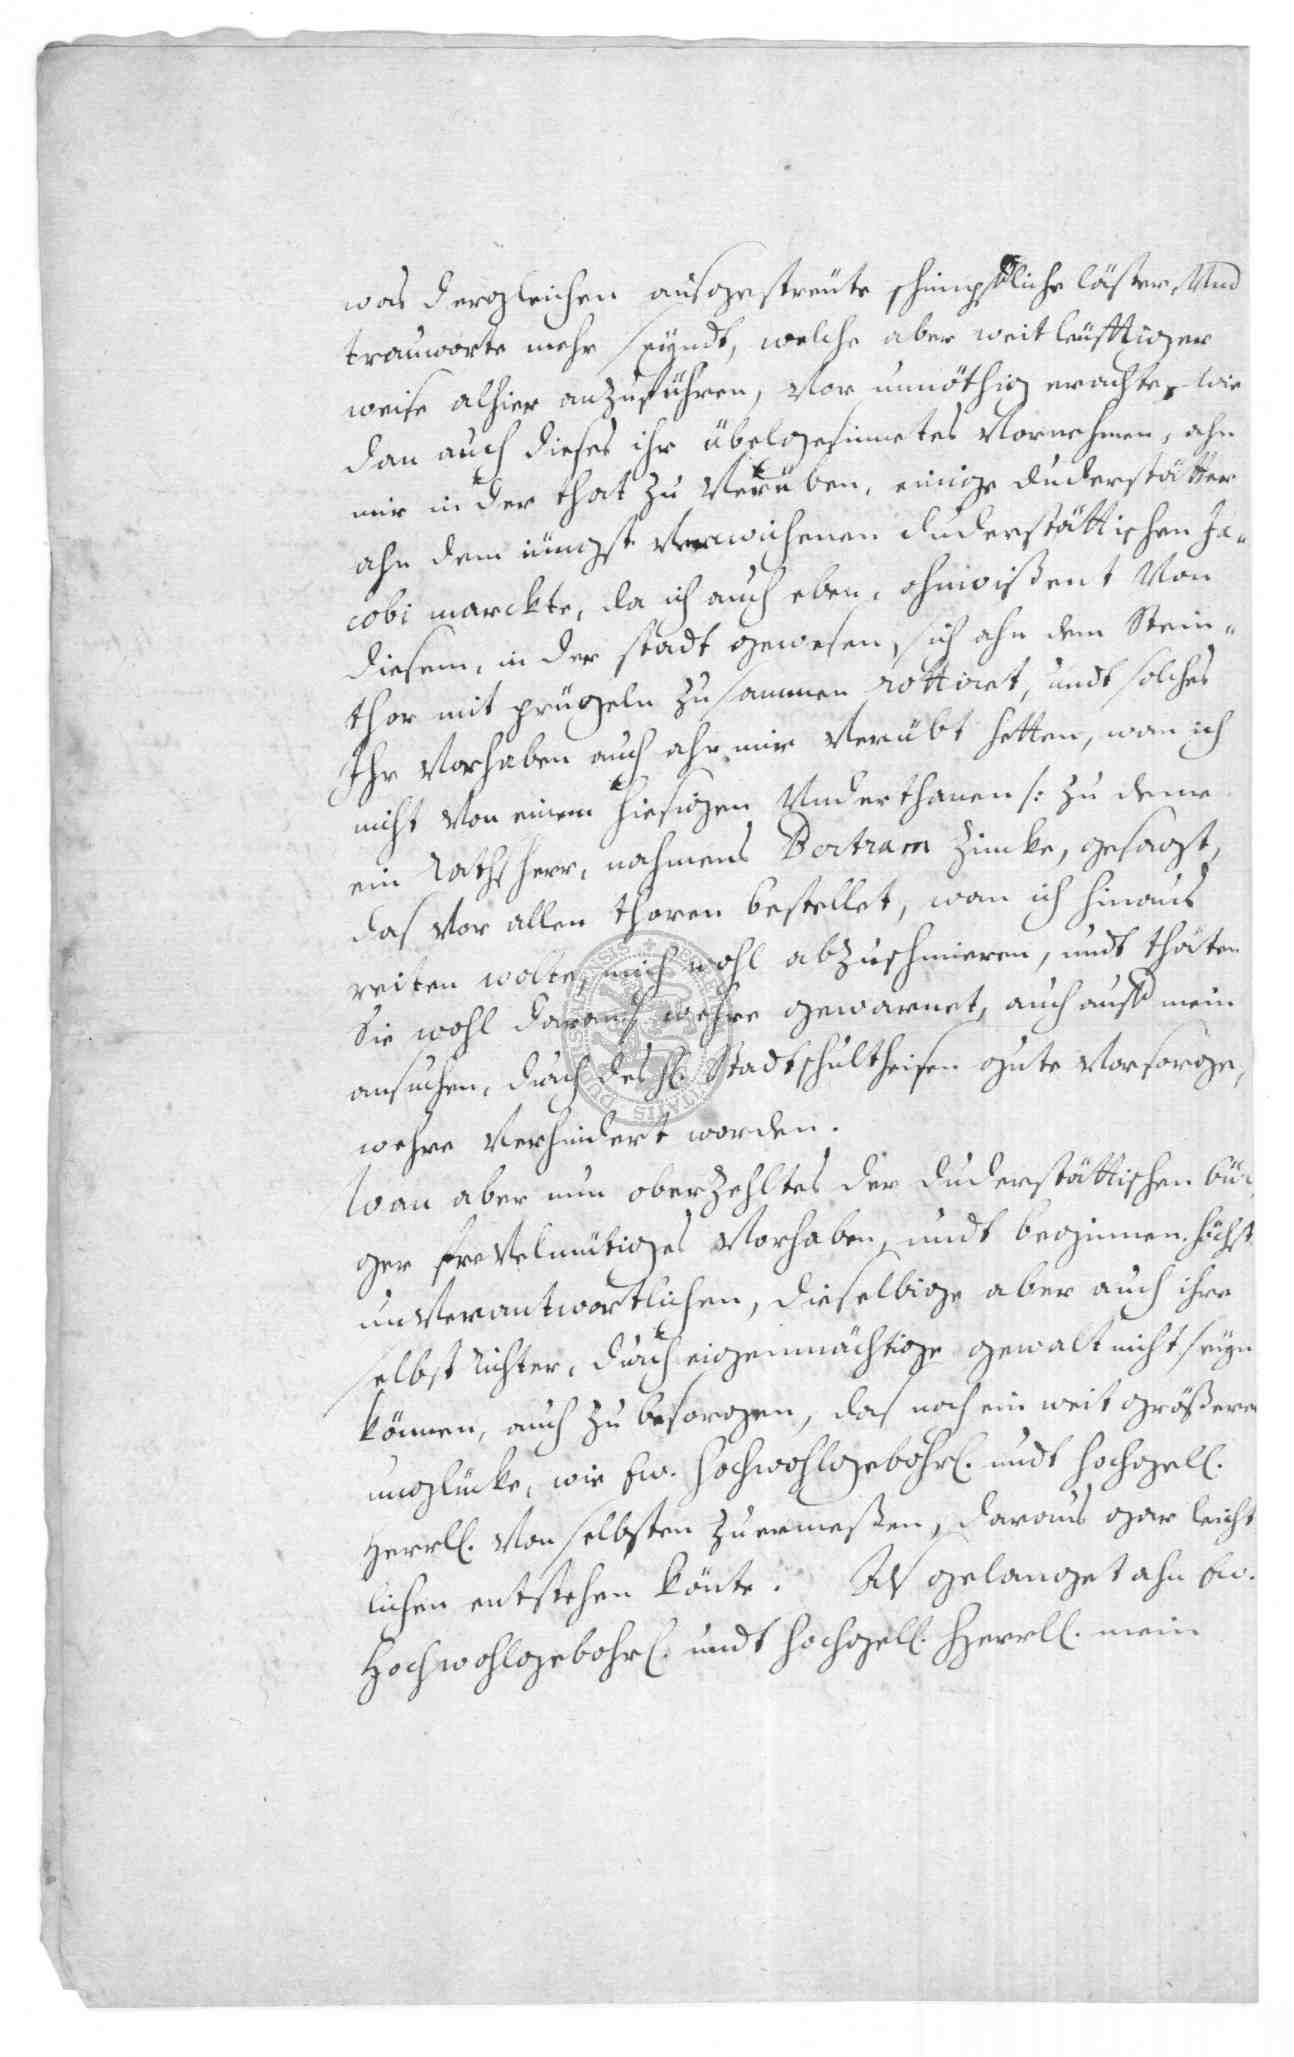 was dergleichen ausgestreüte schimpfliche läster Und
trauworte mehr seÿndt, welche aber weitleüfftiger
weise alhier anzuführen, Vor unnöthig erachte, wie
dan auch dieses ihr übelgesinnetes Vornehmen, ahn
mir in der that zu Verüben, einige duderstätter
ahn dem iüngst Verwichenen duderstättischen Ja-
cobi marckte, da ich auch eben, ohnwißent Von
diesem, in der stadt gewesen, sich ahn dem Stein-
thor mit prügeln zusammen rottiret, undt solches
Ihr Vorhaben auch ahn mir Verübt hetten, wan ich
nicht Von einem hiesigen Underthanen /: zu deme
ein Rathsherr, nahmens Bertram Zincke, gesagt,
das Vor allen thoren bestellet, wan ich hinaus
reiten wolte, mich wohl abzuschmieren, undt thäten
Sie wohl daran wehre gewarnet, auch auff mein
ansuchen, durch des H. Stadtschultheisen gute Vorsorge,
wehre Verhindert worden.
Wan aber nun oberzehltes der duderstättischen bür-
ger freVelmütiges Vorhaben, undt beginnen höchst
unVerantwortlichen, dieselbige aber auch ihre
selbst Richter, durch eigenmächtige gewalt nicht seÿn
können, auch zu besorgen, das noch ein weit größeres
unglücke, wie Ew. Hochwohlgebohrl. undt Hochgell.
Herrll. Von selbsten zuermeßen, daraus gar leicht
lichen entstehen könte. Als gelanget ahn Ew.
Hochwohlgebohrl. undt Hochgell. Herrll. mein